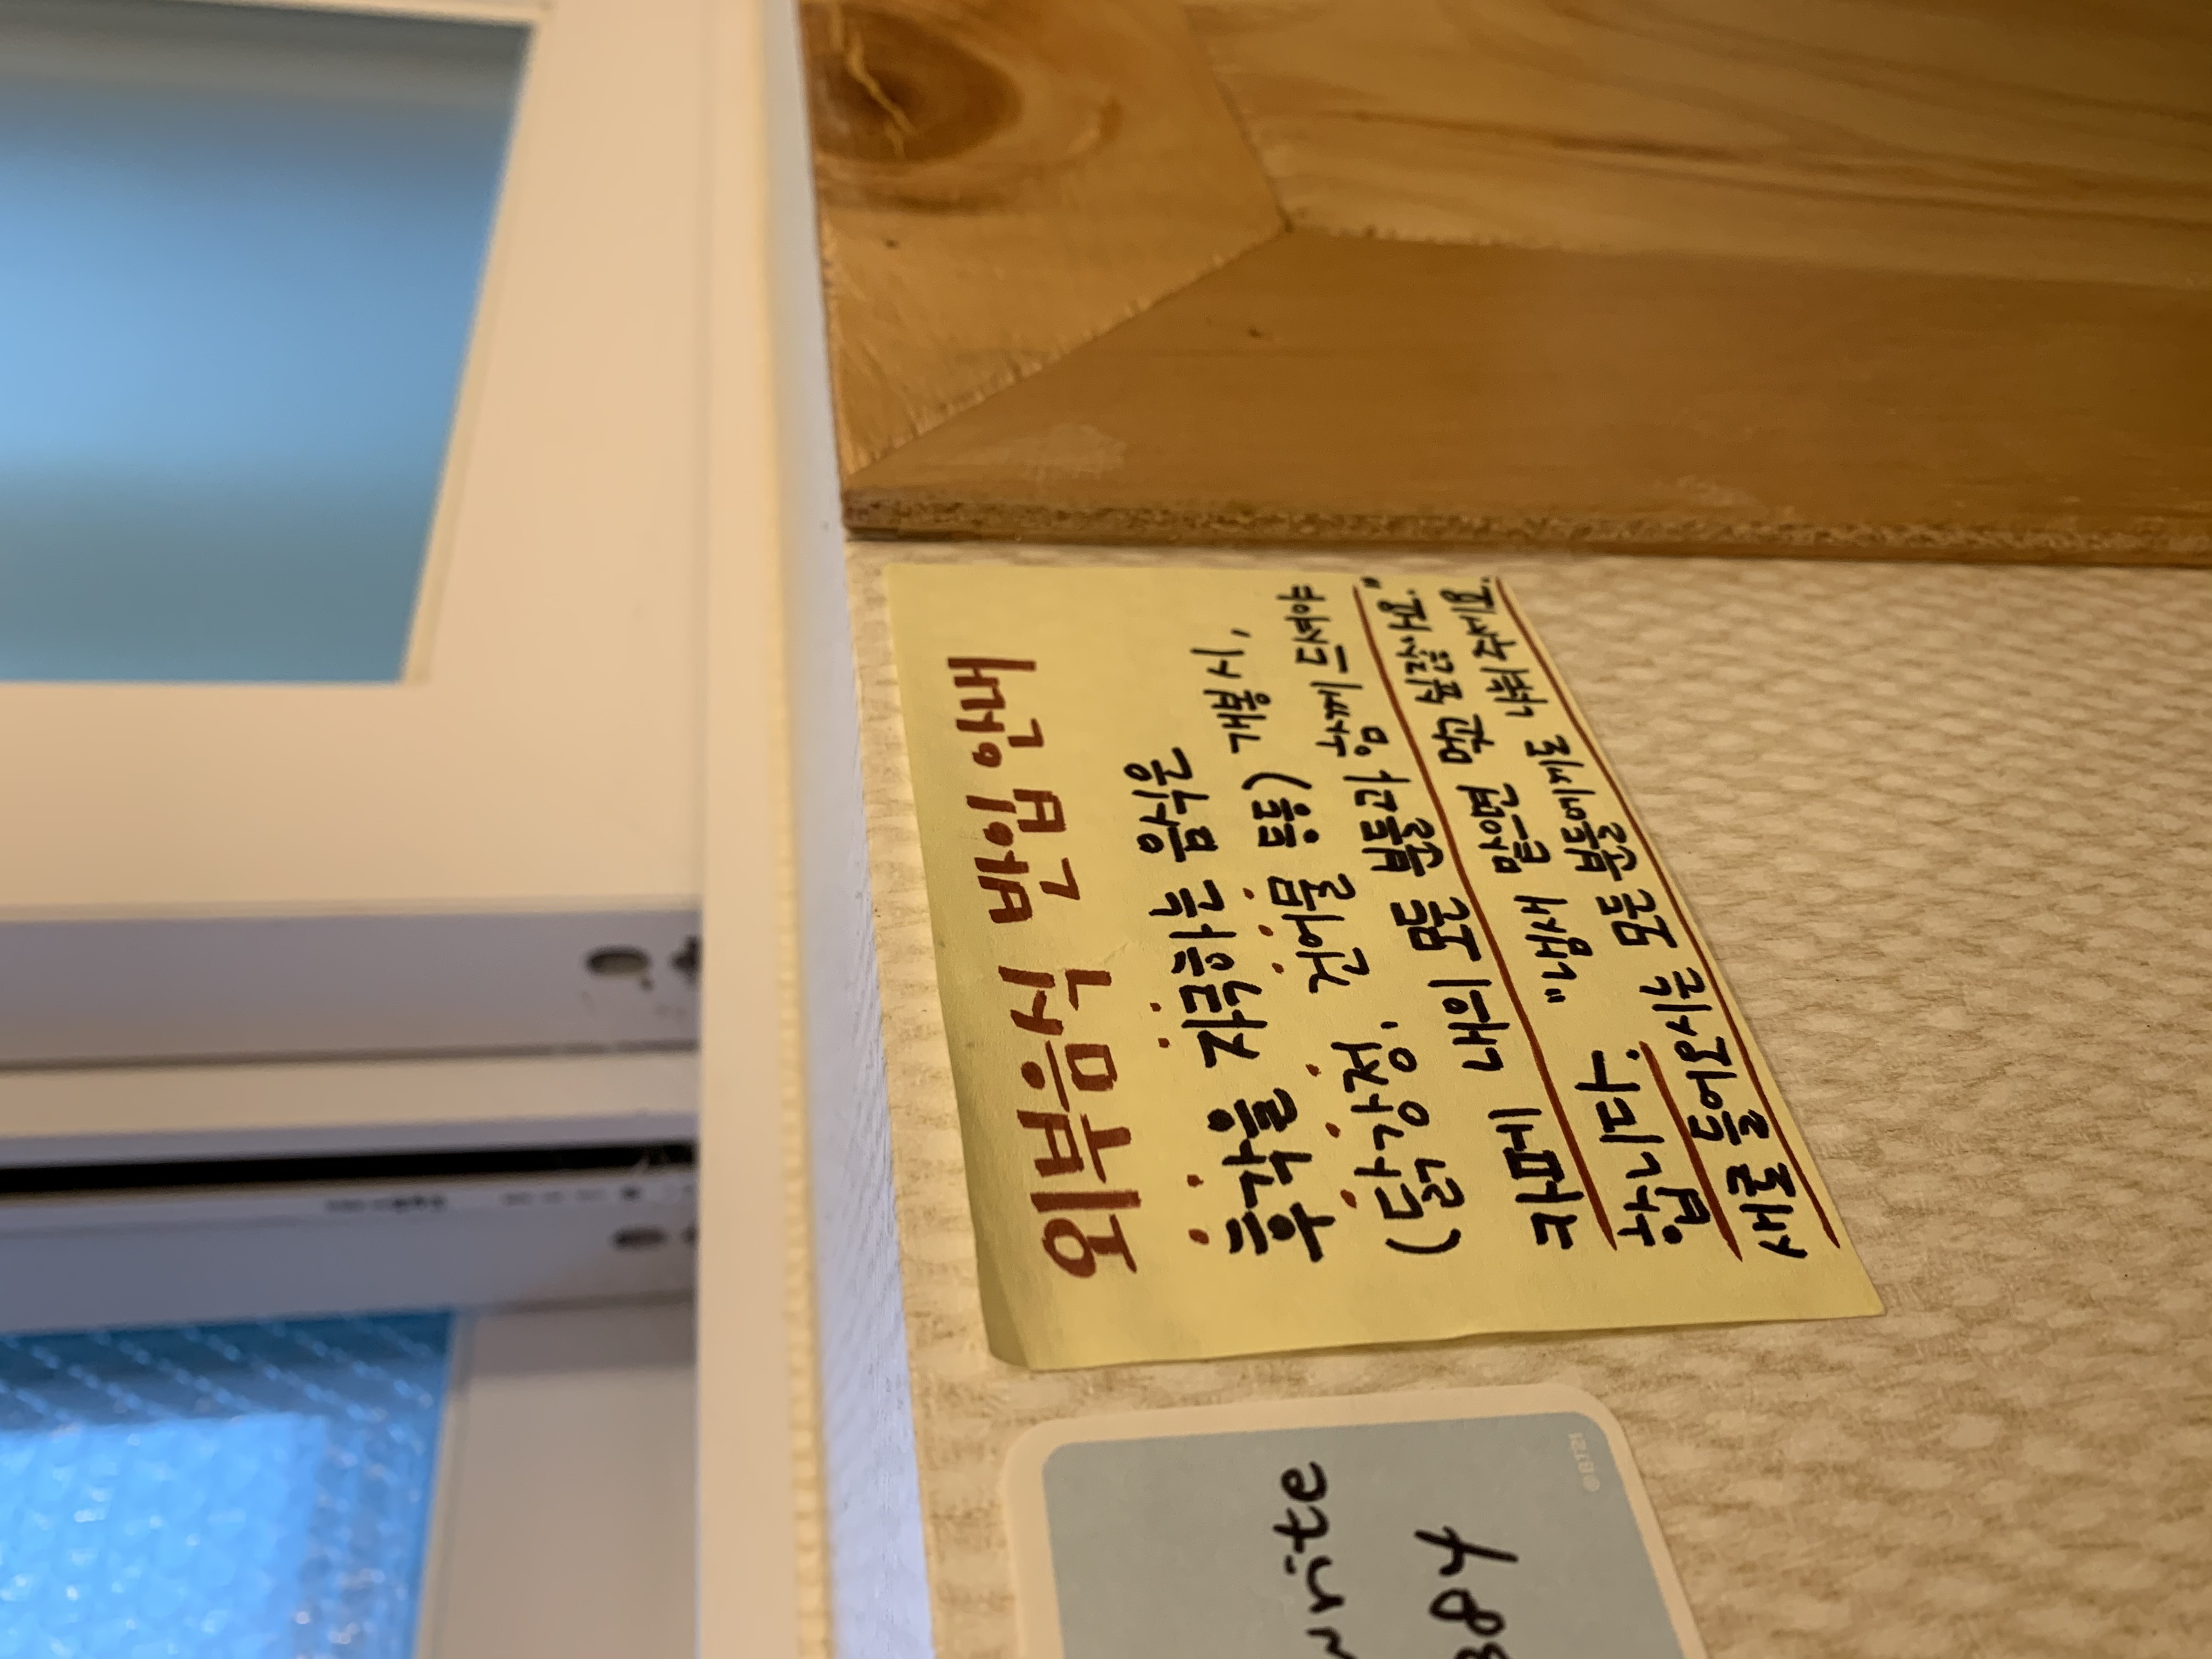 write
384
@BT21
외부음식 반입 안내
후각을 자극하는 음식은
(닭강정, 건어물 등등) 개봉 시,
카페 내의 모든 분들과 함께 드셔야
합니다. "냄새 맡으면 먹고 싶잖아요."
새로 들어오시는 모든 분들에게도 나눠 주세요.